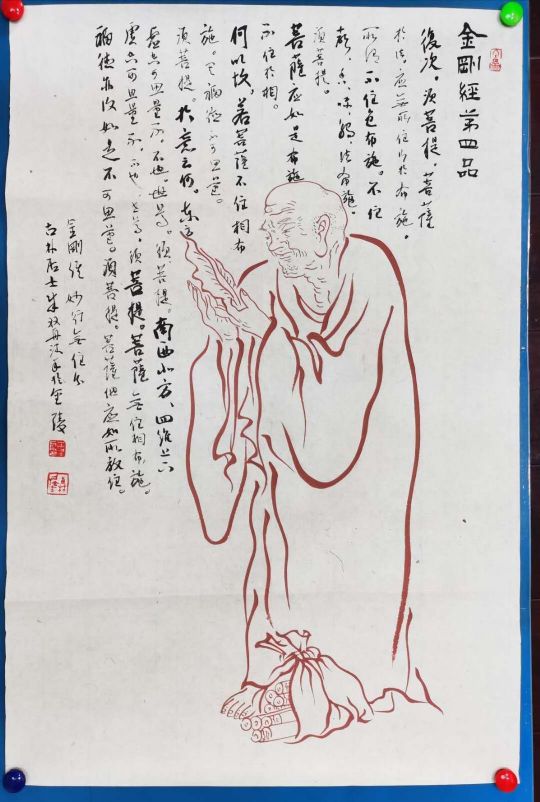 金剛經第四品
復次。須菩提，菩薩
於法，應無所住，行於布施。
所謂不住色布施。不住
聲、香、味、觸、法布施。
須菩提。
菩薩應如是布施
不住於相。
何以故，若菩薩不住相布
施。其福德不可思量。
須菩提。於意云何。東方
虛空可思量不。不也。世尊。須菩提。南西北方、四維上下
虛空可思量不。不也。世尊。須菩提。菩薩無住相布施。
福德亦復如是不可思量。須菩提。菩薩但應如所教住。
金剛經妙行無住分
古朴居士朱双丹沐手於金陵